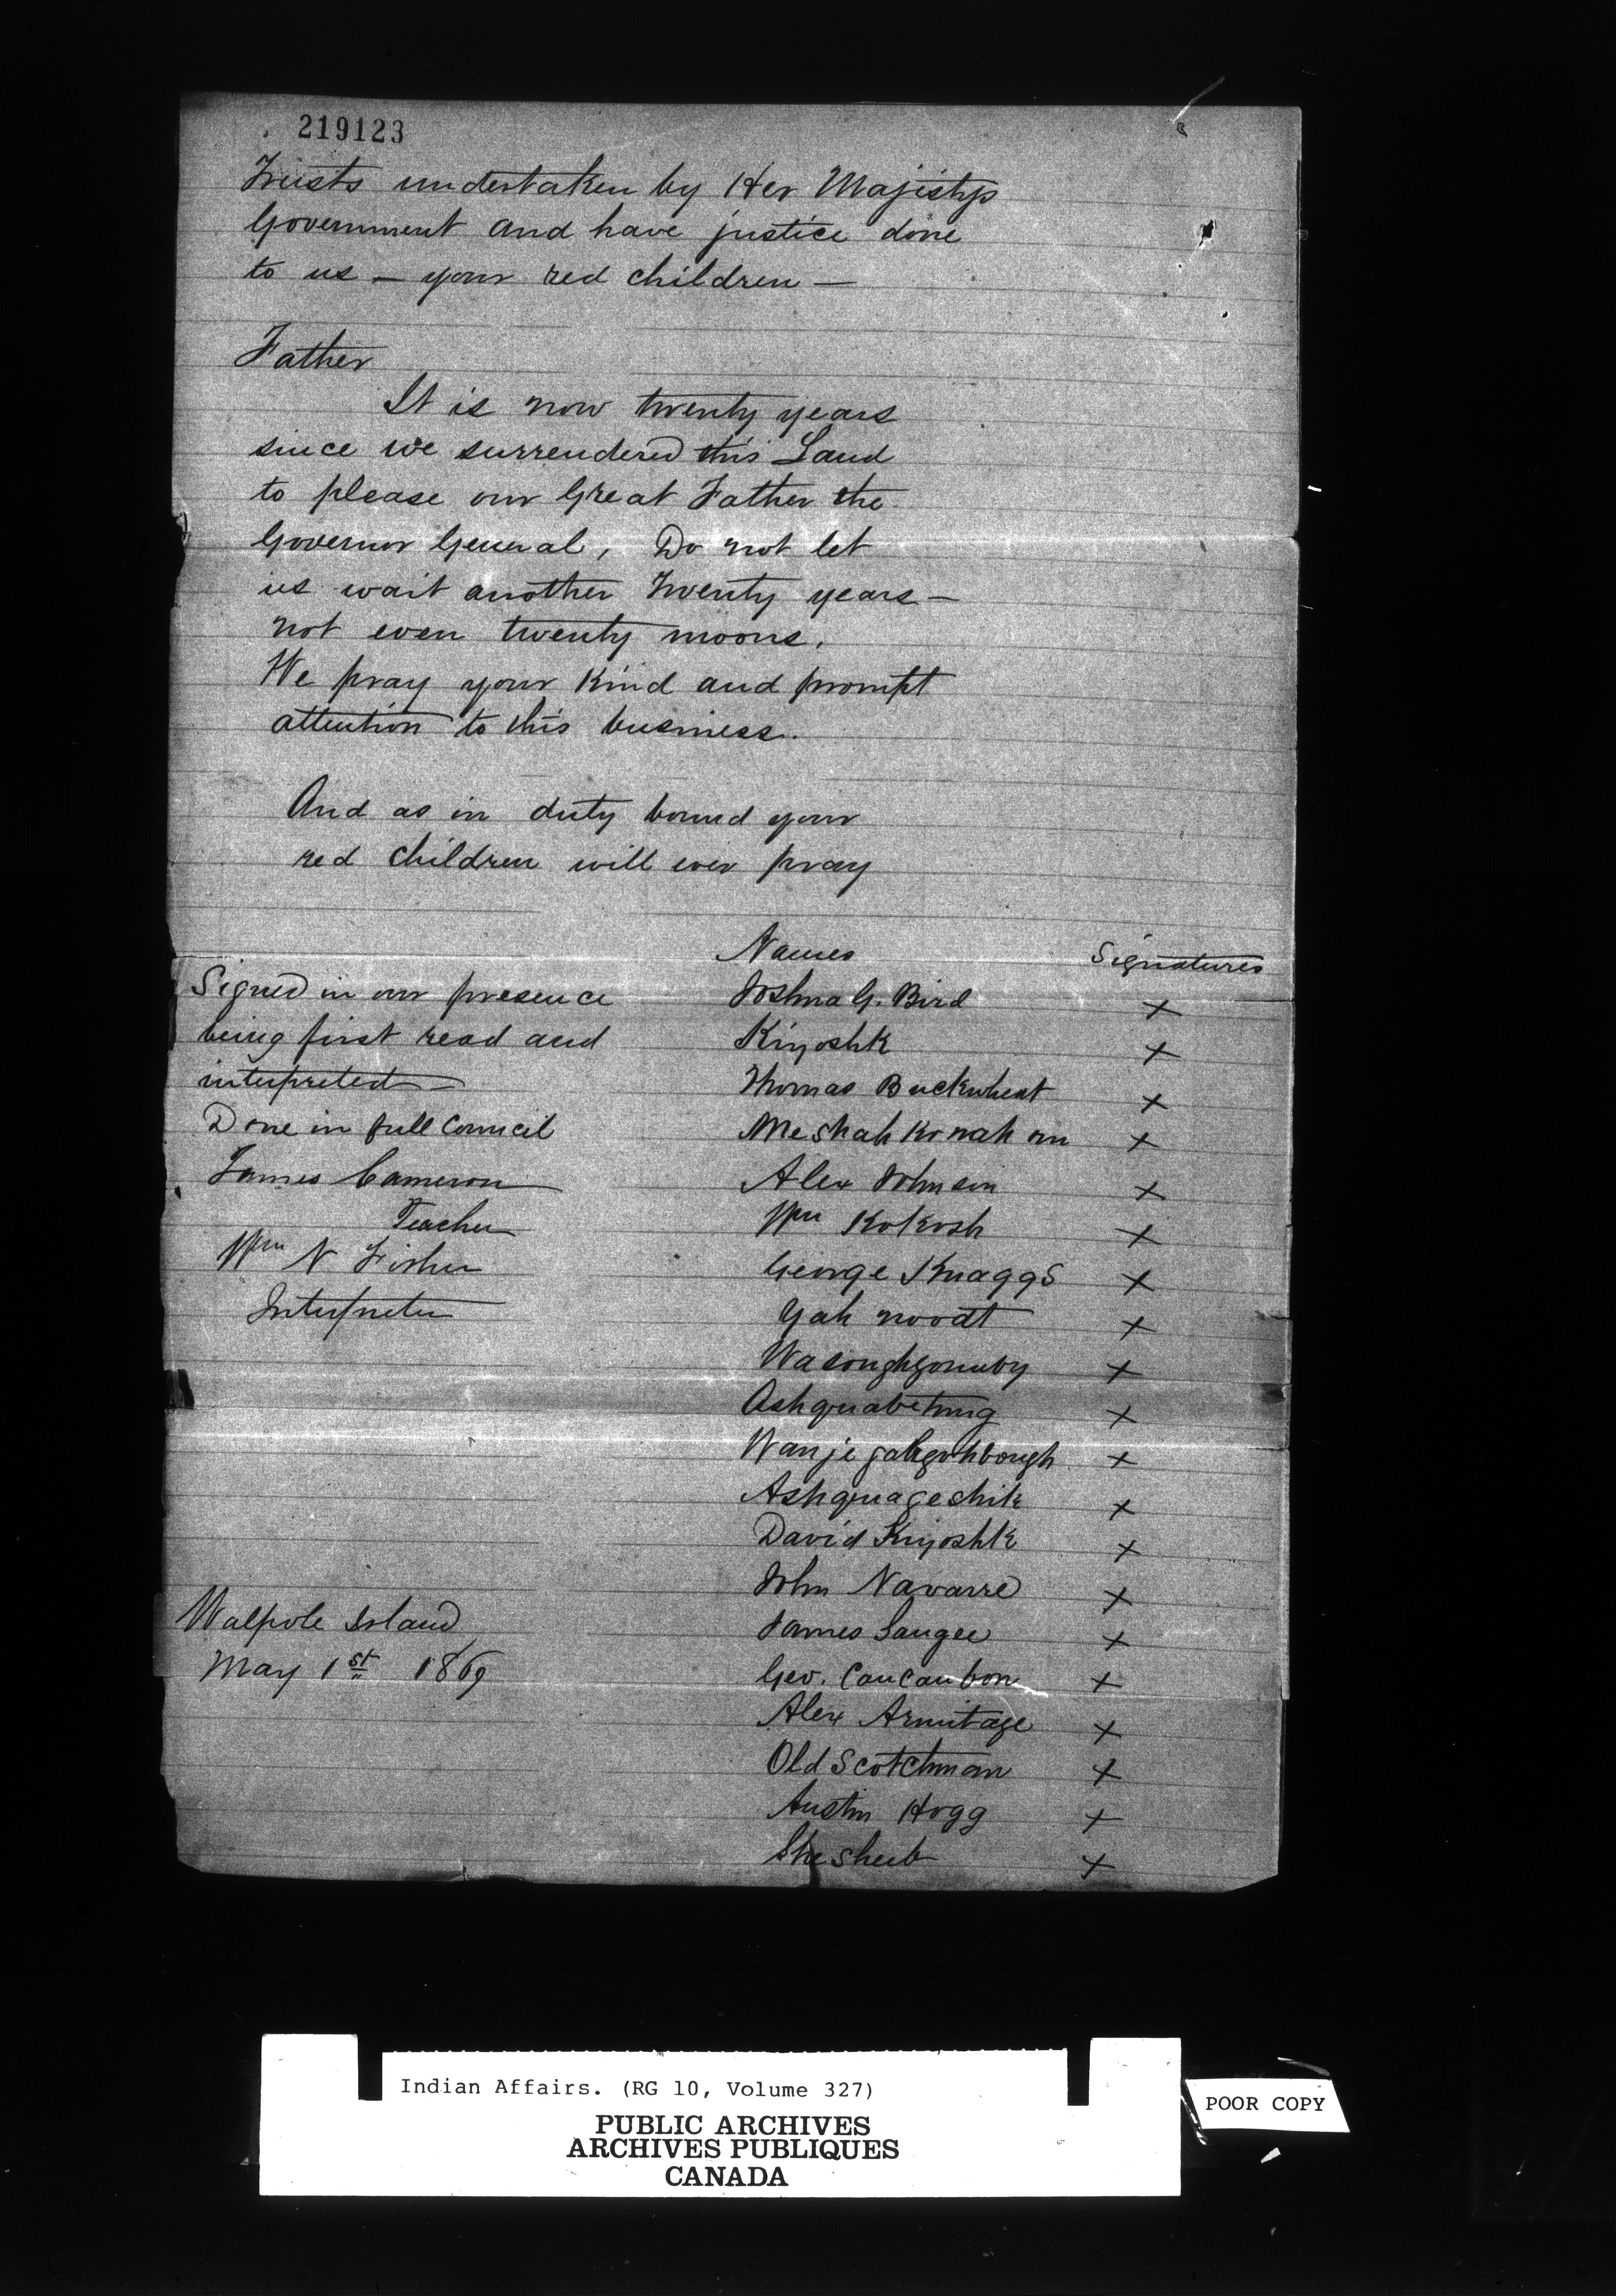 219123
Trusts undertaken by Her Majistys
Government and have justice done
to us — your red children —
Father
It is now twenty years
since we surrendered this Land
to please our Great Father the
Governor General, Do not let
us wait another Twenty years —
not even twenty moons.
We pray your Kind and prompt
attention to this business.
And as in duty bound your
red children will ever pray
Names Signatures
Signed in our presence
being first read and
interpreted —
Done in full Council
James Cameron
Teacher
Wm N Fisher
Interpreter
Walpole Island
May 1st 1869
Joshua G. Bird X
Kiyoshk X
Thomas Buckwheat X
Me shah ko nah om X
Alex Johnson X
Wm Kokosh X
George Knaggs X
Yah noodt X
X
Ashquabetung X
X
Ashquageshik X
David Kiyoshk X
John Navarre X
James Saugee X
Geo. Caucaubon X
Alex Armitage X
Old Scotchman X
Austin Hogg X
Shesheeb X
Indian Affairs. (RG 10, Volume 327)
PUBLIC ARCHIVES
ARCHIVES PUBLIQUES
CANADA
POOR COPY